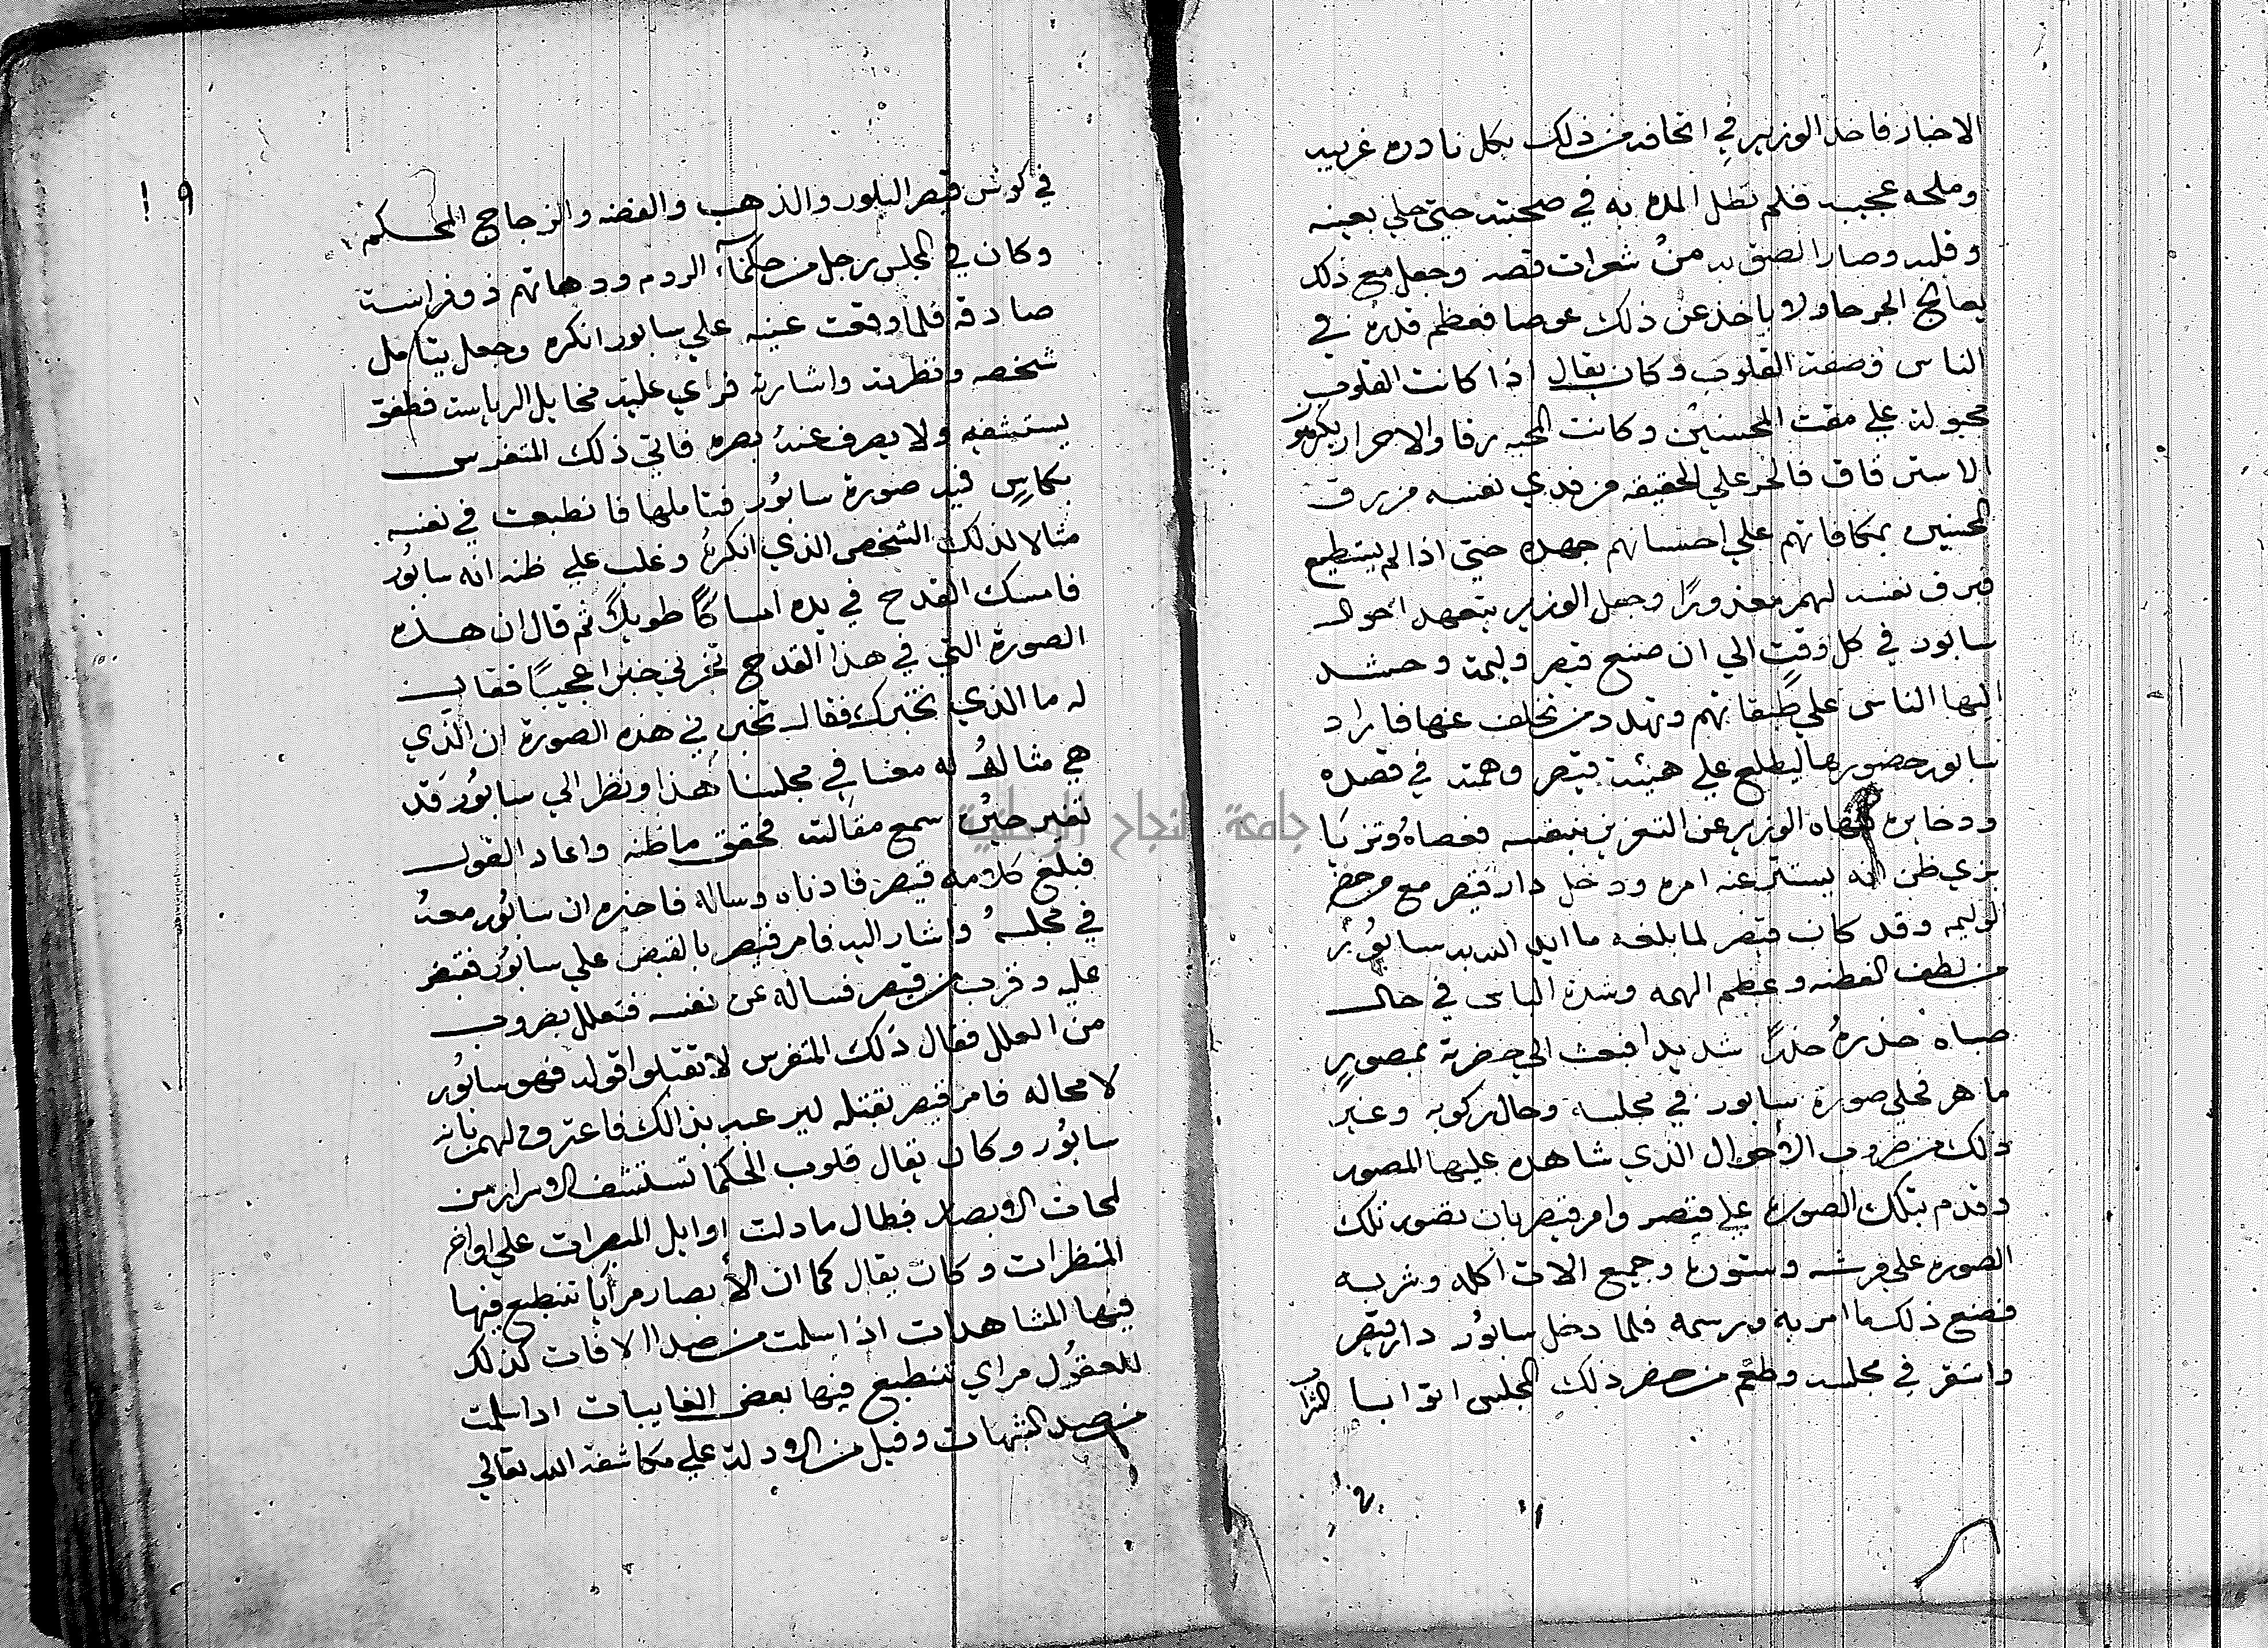 الاخبار فاخد الوزير في اتحافه من ذلك بكل نادره غريبه
وملحه عجيبه فلم تطل المده به في صحبته حتي حلي بعينه
وقلبه وصار الصق به من شعرات قصه وجعل مع ذلك
يعالج الجرحا ولا ياخذ عن ذلك عوضا فعظم قدره في
الناس وصفت القلوب وكان يقال اذا كانت القلوب
مجبولة علي مقت المحسنين وكانت المحبه رقا والاحرار يكرهو
الاسترقاق فالحر علي الحقيقه من فدي نفسه من رق
المحسنين بمكافاتهم علي احسانهم جهده حتي اذا لم يستطيع
فيرق نفسه لهم معذورًا وجعل الوزير يتعهد احوال
سابور في كل وقتٍ الي ان صنع قيصر وليمة وحشد
اليها الناس علي طبقاتهم وتهدد من تخلف عنها فاراد
سابور حضورها ليطلع علي هيئت قيصر وهمته في قصره
وذخايره فنهاه الوزير عن التعزير بنفسه فعصاه وتزيا
بزي ظن انه يستتر عنه امره ودخل دار قيصر مع من حضر
الوليمه وقد كان قيصر لما بلغه ما ايد الله به سابور
من لطف الفطنه وعظم الهمه وشدة الباس في حال
صباه حذره حذرًا شديدا فبعث الي حضرته بمصورٍ
ماهر فحلي صورة سابور في مجلسه وحال ركوبه وغير
ذلك من ضروب الأحوال الذي شاهده عليها المصور
وقدم بتلك الصورة علي قيصر وامر قيصر بان تصور تلك
الصوره علي فرشه وستوره وجميع الات اكله وشربه
فصنع ذلك ما امر به ورسمه فلما دخل سابور دار قيصر
واستقر في مجلسه وطعم من حضر ذلك المجلس اتوا بالشراب
١٩
في كوس قيصر البلور والذهب والفضه والزجاج المحكم
وكان في المجلس رجل من حكمآء الروم ودهاتهم ذو فراست
صادقه فلما وقعت عينه علي سابور انكره وجعل يتامل
شخصه ونظرته واشارته فراي عليه مخايل الرياست فطفق
يستشفه ولا يصرف عنه بصره فاتي ذلك المتفرس
بكاسٍ فيه صورة سابور فتاملها فانطبعت في نفسه
مثالا لذلك الشخص الذي انكره وغلب علي ظنه انه سابور
فامسك القدح في يده امساكًا طويلًا ثم قال ان هذه
الصورة التي في هذا القدح تخبرني خبرا عجيبًا فقال
له ما الذي تخبرك فقال تخبرني هذه الصورة ان الذي
هي مثاله له معنا في مجلسنا هذا ونظر الي سابور قد
تغير حين سمع مقالته فحقق ما ظنه واعاد القول
فبلغ كلامه قيصر فادناه وساله فاخبره ان سابور معه
في مجلسه واشار اليه فامر قيصر بالقبض علي سابور فقبض
عليه وقرب من قيصر فساله عن نفسه فتعلل بضروب
من العلل فقال ذلك المتفرس لا تقبلوا قوله فهو سابور
لا محاله فامر قيصر بقتله ليرعبه بذالك فاعترف لهم بانه
سابور وكان يقال قلوب الحكما تستشف الاسرار من
لمحات الابصار فطال ما دلت اوايل المبصرات علي اواخر
المنظرات وكان يقال كما ان الأبصار مرايا تنطبع فيها
فيها المشاهدات اذا سلمت من صدا الافات كذلك
للعقول مراي تنطبع فيها بعض الغايبات اذا سلمت
من صيد الشهات وقيل من الادلة علي مكاشفة الله تعالي
جامعة النجاح الوطنية